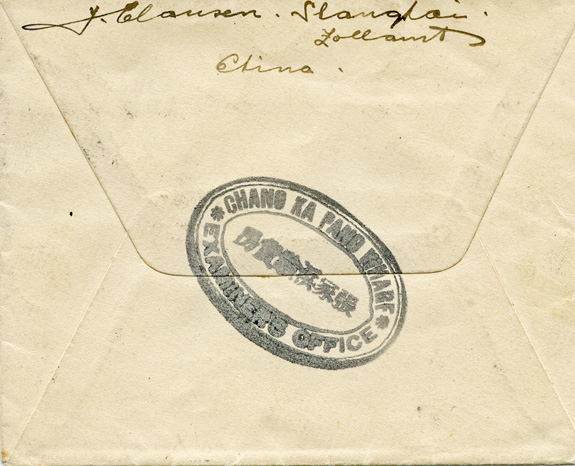 J. Clausen. Shanghai.
Zollamt
China.
CHANG KA PANG WHARF
張家浜驗貨房
EXAMINER'S OFFICE